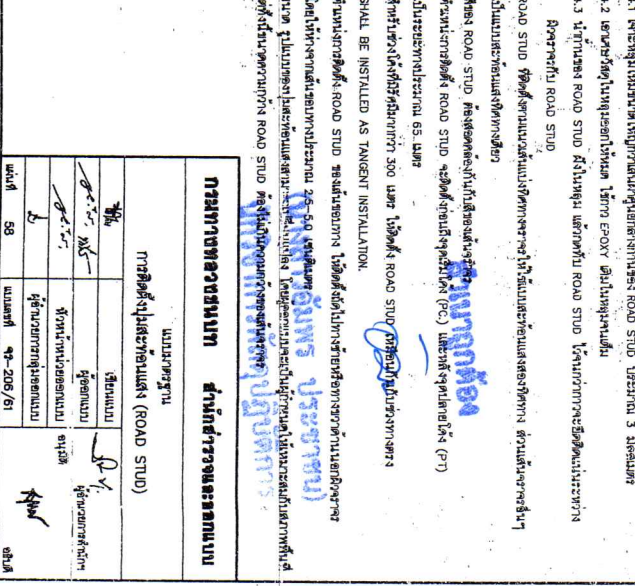 4.1 เจาะหลุมให้มีขนาดใหญ่กว่าเส้นผ่าศูนย์กลางก้านของ ROAD STUD ประมาณ 3 มิลลิเมตร
4.2 เอาเศษวัสดุในหลุมออกให้หมด ใช้กาว EPOXY เติมในหลุมจนเต็ม
4.3 นำก้านของ ROAD STUD ฝังในหลุม แล้วกดทับ ROAD STUD ไว้จนกาวจะยึดติดแน่นระหว่าง
ผิวจราจรกับ ROAD STUD
ROAD STUD ที่ติดตั้งตามแนวเส้นแบ่งทิศทางจราจรให้ใช้แบบสะท้อนแสงสองทิศทาง ส่วนเส้นจราจรอื่นๆ
เป็นแบบสะท้อนแสงทิศทางเดียว
สีของ ROAD STUD ต้องสอดคล้องกันกับสีของเส้นจราจร
ตำแหน่งการติดตั้ง ROAD STUD จะติดตั้งก่อนถึงจุดเริ่มโค้ง (PC.) และหลังจุดปลายโค้ง (PT)
เป็นระยะทางประมาณ 65 เมตร
สำหรับช่วงโค้งที่มีรัศมีมากกว่า 300 เมตร ให้ติดตั้ง ROAD STUD เหมือนกันกับช่วงทางตรง
SHALL BE INSTALLED AS TANGENT INSTALLATION.
ตำแหน่งการติดตั้ง ROAD STUD ของเส้นขอบทาง ให้ติดตั้งถัดไปทางซ้ายหรือทางขวาด้านนอกผิวจราจร
โดยให้ห่างจากเส้นขอบทางประมาณ 2.5-5.0 เซนติเมตร
ขนาด รูปแบบของปุ่มสะท้อนแสงสามารถเปลี่ยนแปลง โดยผู้ออกแบบจะเป็นผู้กำหนดให้เหมาะสมกับสภาพพื้นที่
แต่ทั้งนี้ขนาดความกว้าง ROAD STUD ต้องไม่เกินความกว้างของเส้นจราจร
สำเนาถูกต้อง
ประชาชน)
กรมทางหลวงชนบท สำนักสำรวจและออกแบบ
แบบมาตรฐาน
การติดตั้งปุ่มสะท้อนแสง (ROAD STUD)
เขียนแบบ
ผู้ออกแบบ
หัวหน้าหน่วยออกแบบ
ผู้อำนวยการกลุ่มออกแบบ
ผู้อำนวยการสำนักฯ
อนุมัติ
อธิบดี
แผ่นที่ 58
แบบเลขที่ ทช-206/61